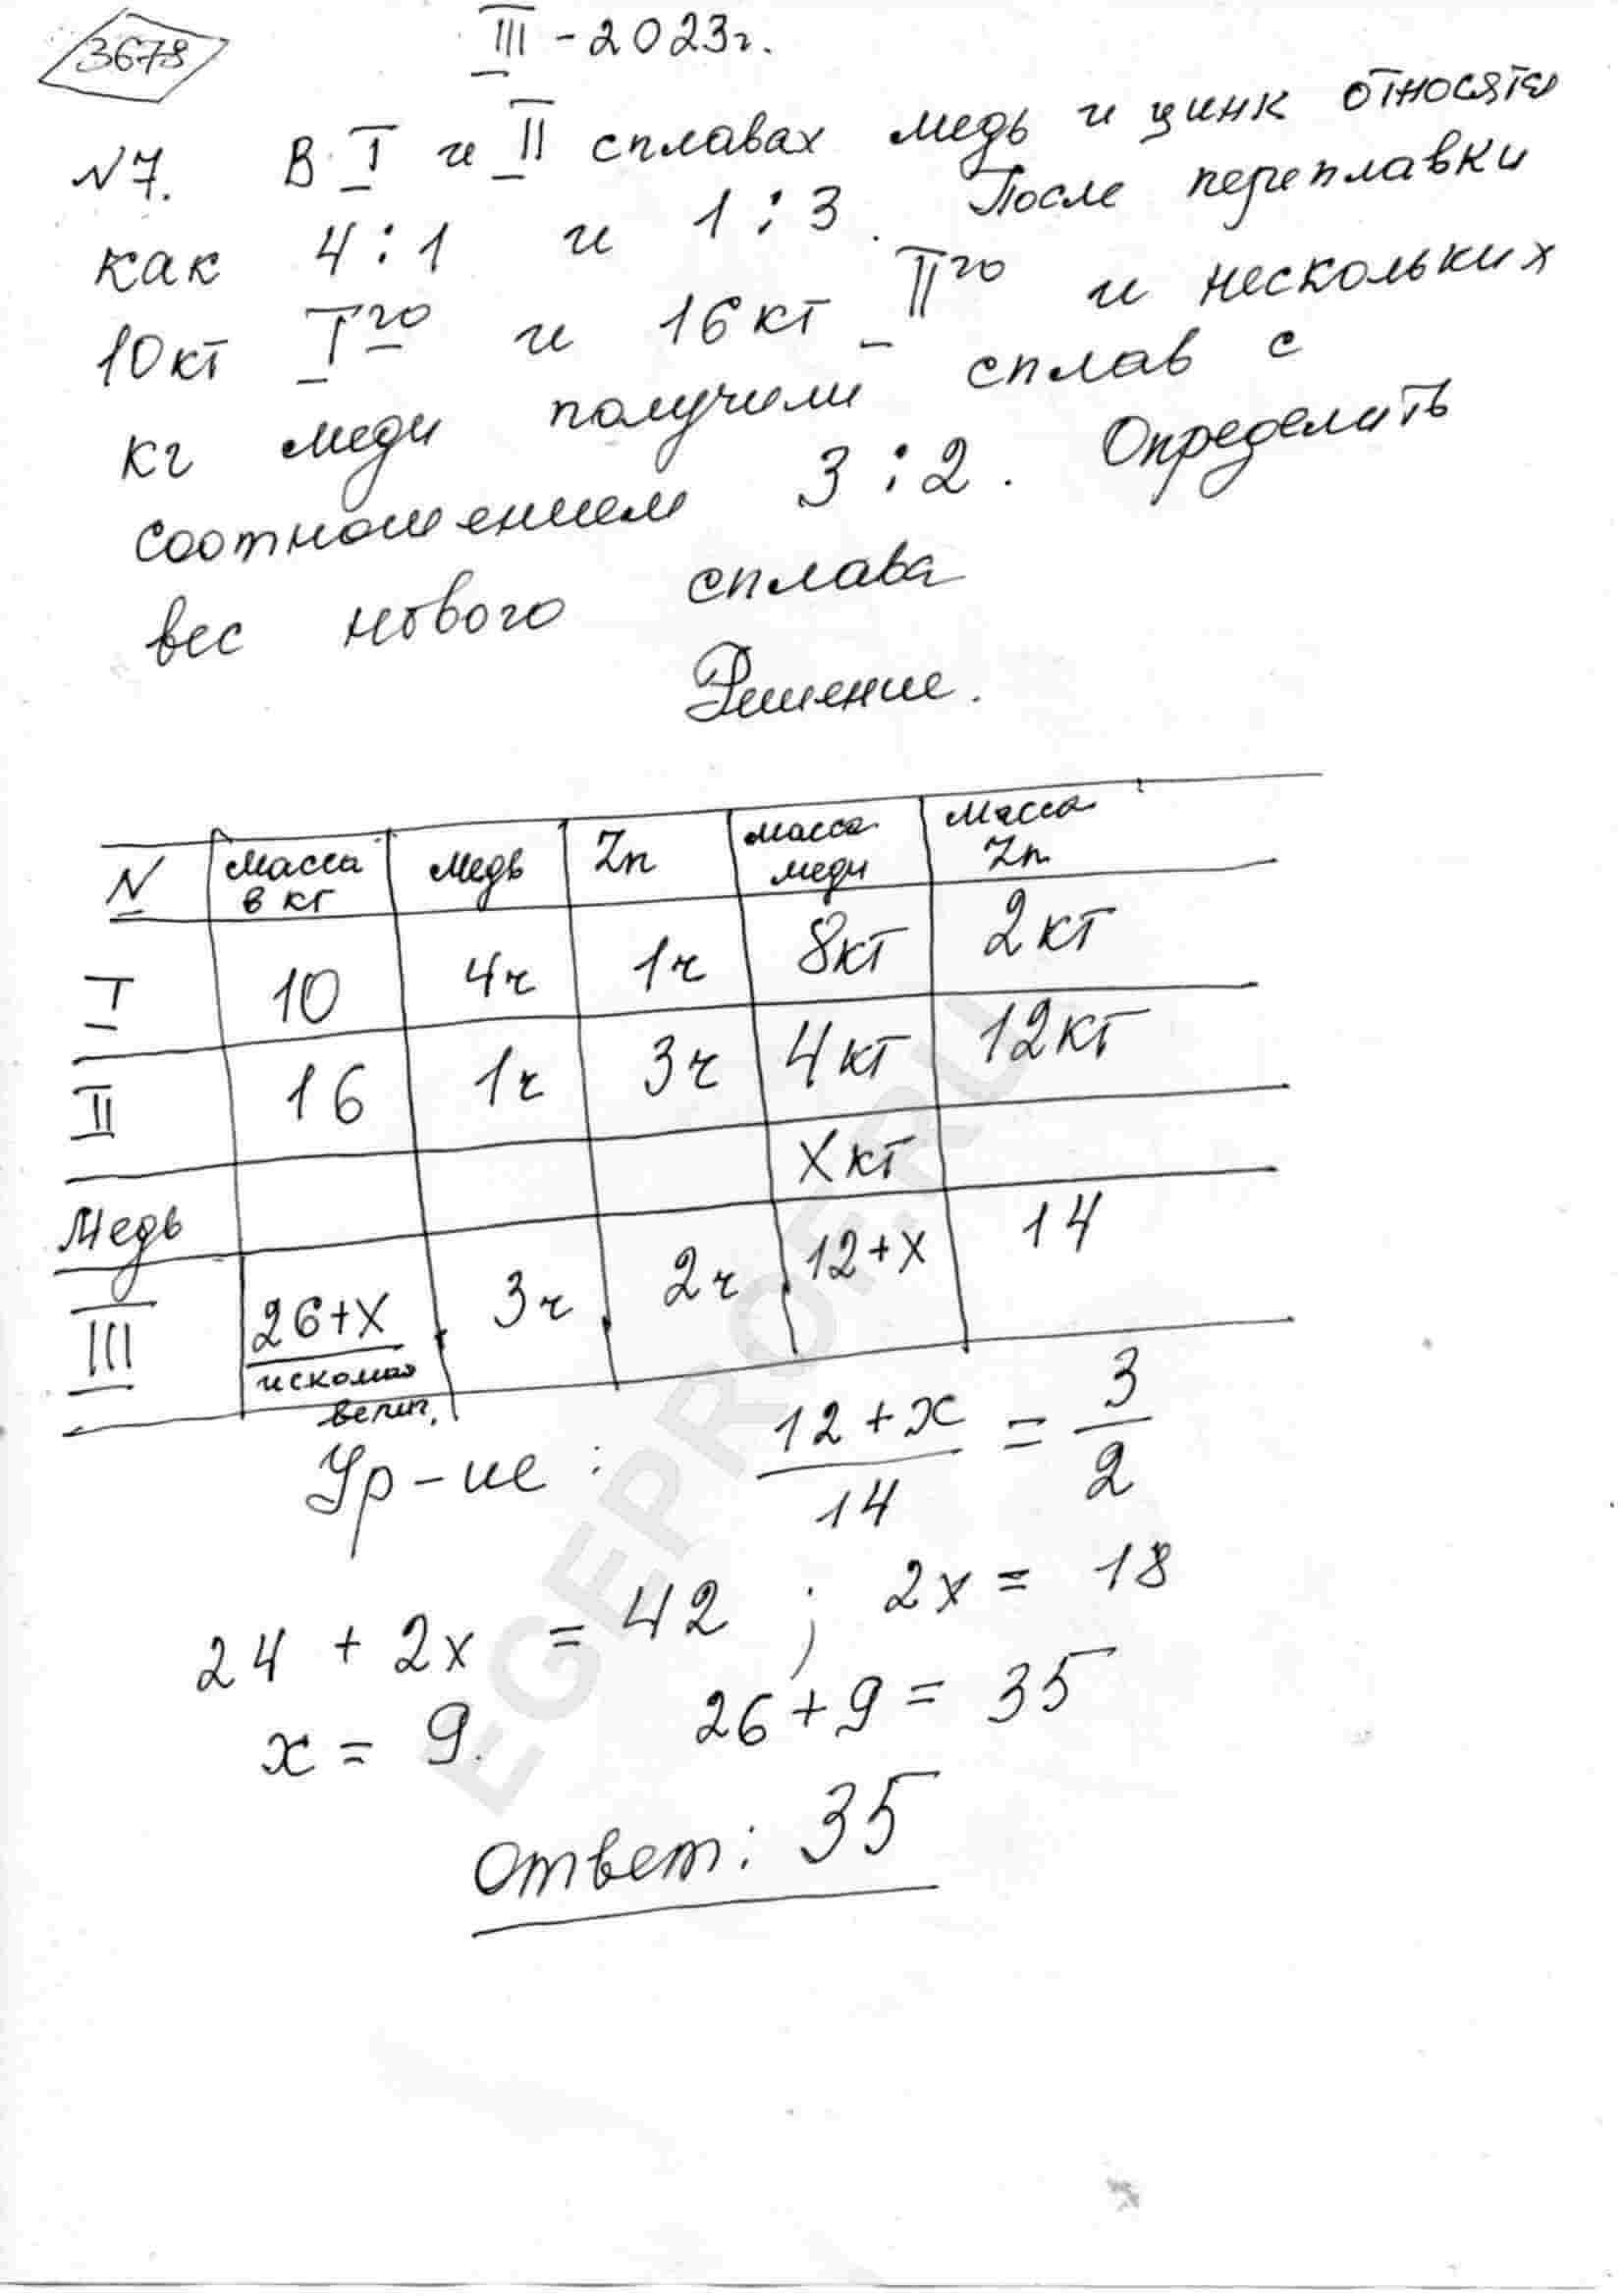 3678
III - 2023г.
№7. В I и II сплавах медь и цинк относятся
как 4:1 и 1:3. После переплавки
10кг Iго и 16кг IIго и нескольких
кг меди получили сплав с
соотношением 3:2. Определить
вес нового сплава
Решение.
N масса в кг медь Zn масса меди масса Zn
I 10 4ч 1ч 8кг 2кг
II 16 1ч 3ч 4кг 12кг
Медь X кг
III 26+X искомая велич. 3ч 2ч 12+X 14
Ур-ие: (12+x)/14 = 3/2
24 + 2x = 42 ; 2x = 18
x = 9. 26+9 = 35
Ответ: 35
EGEPROF.RU